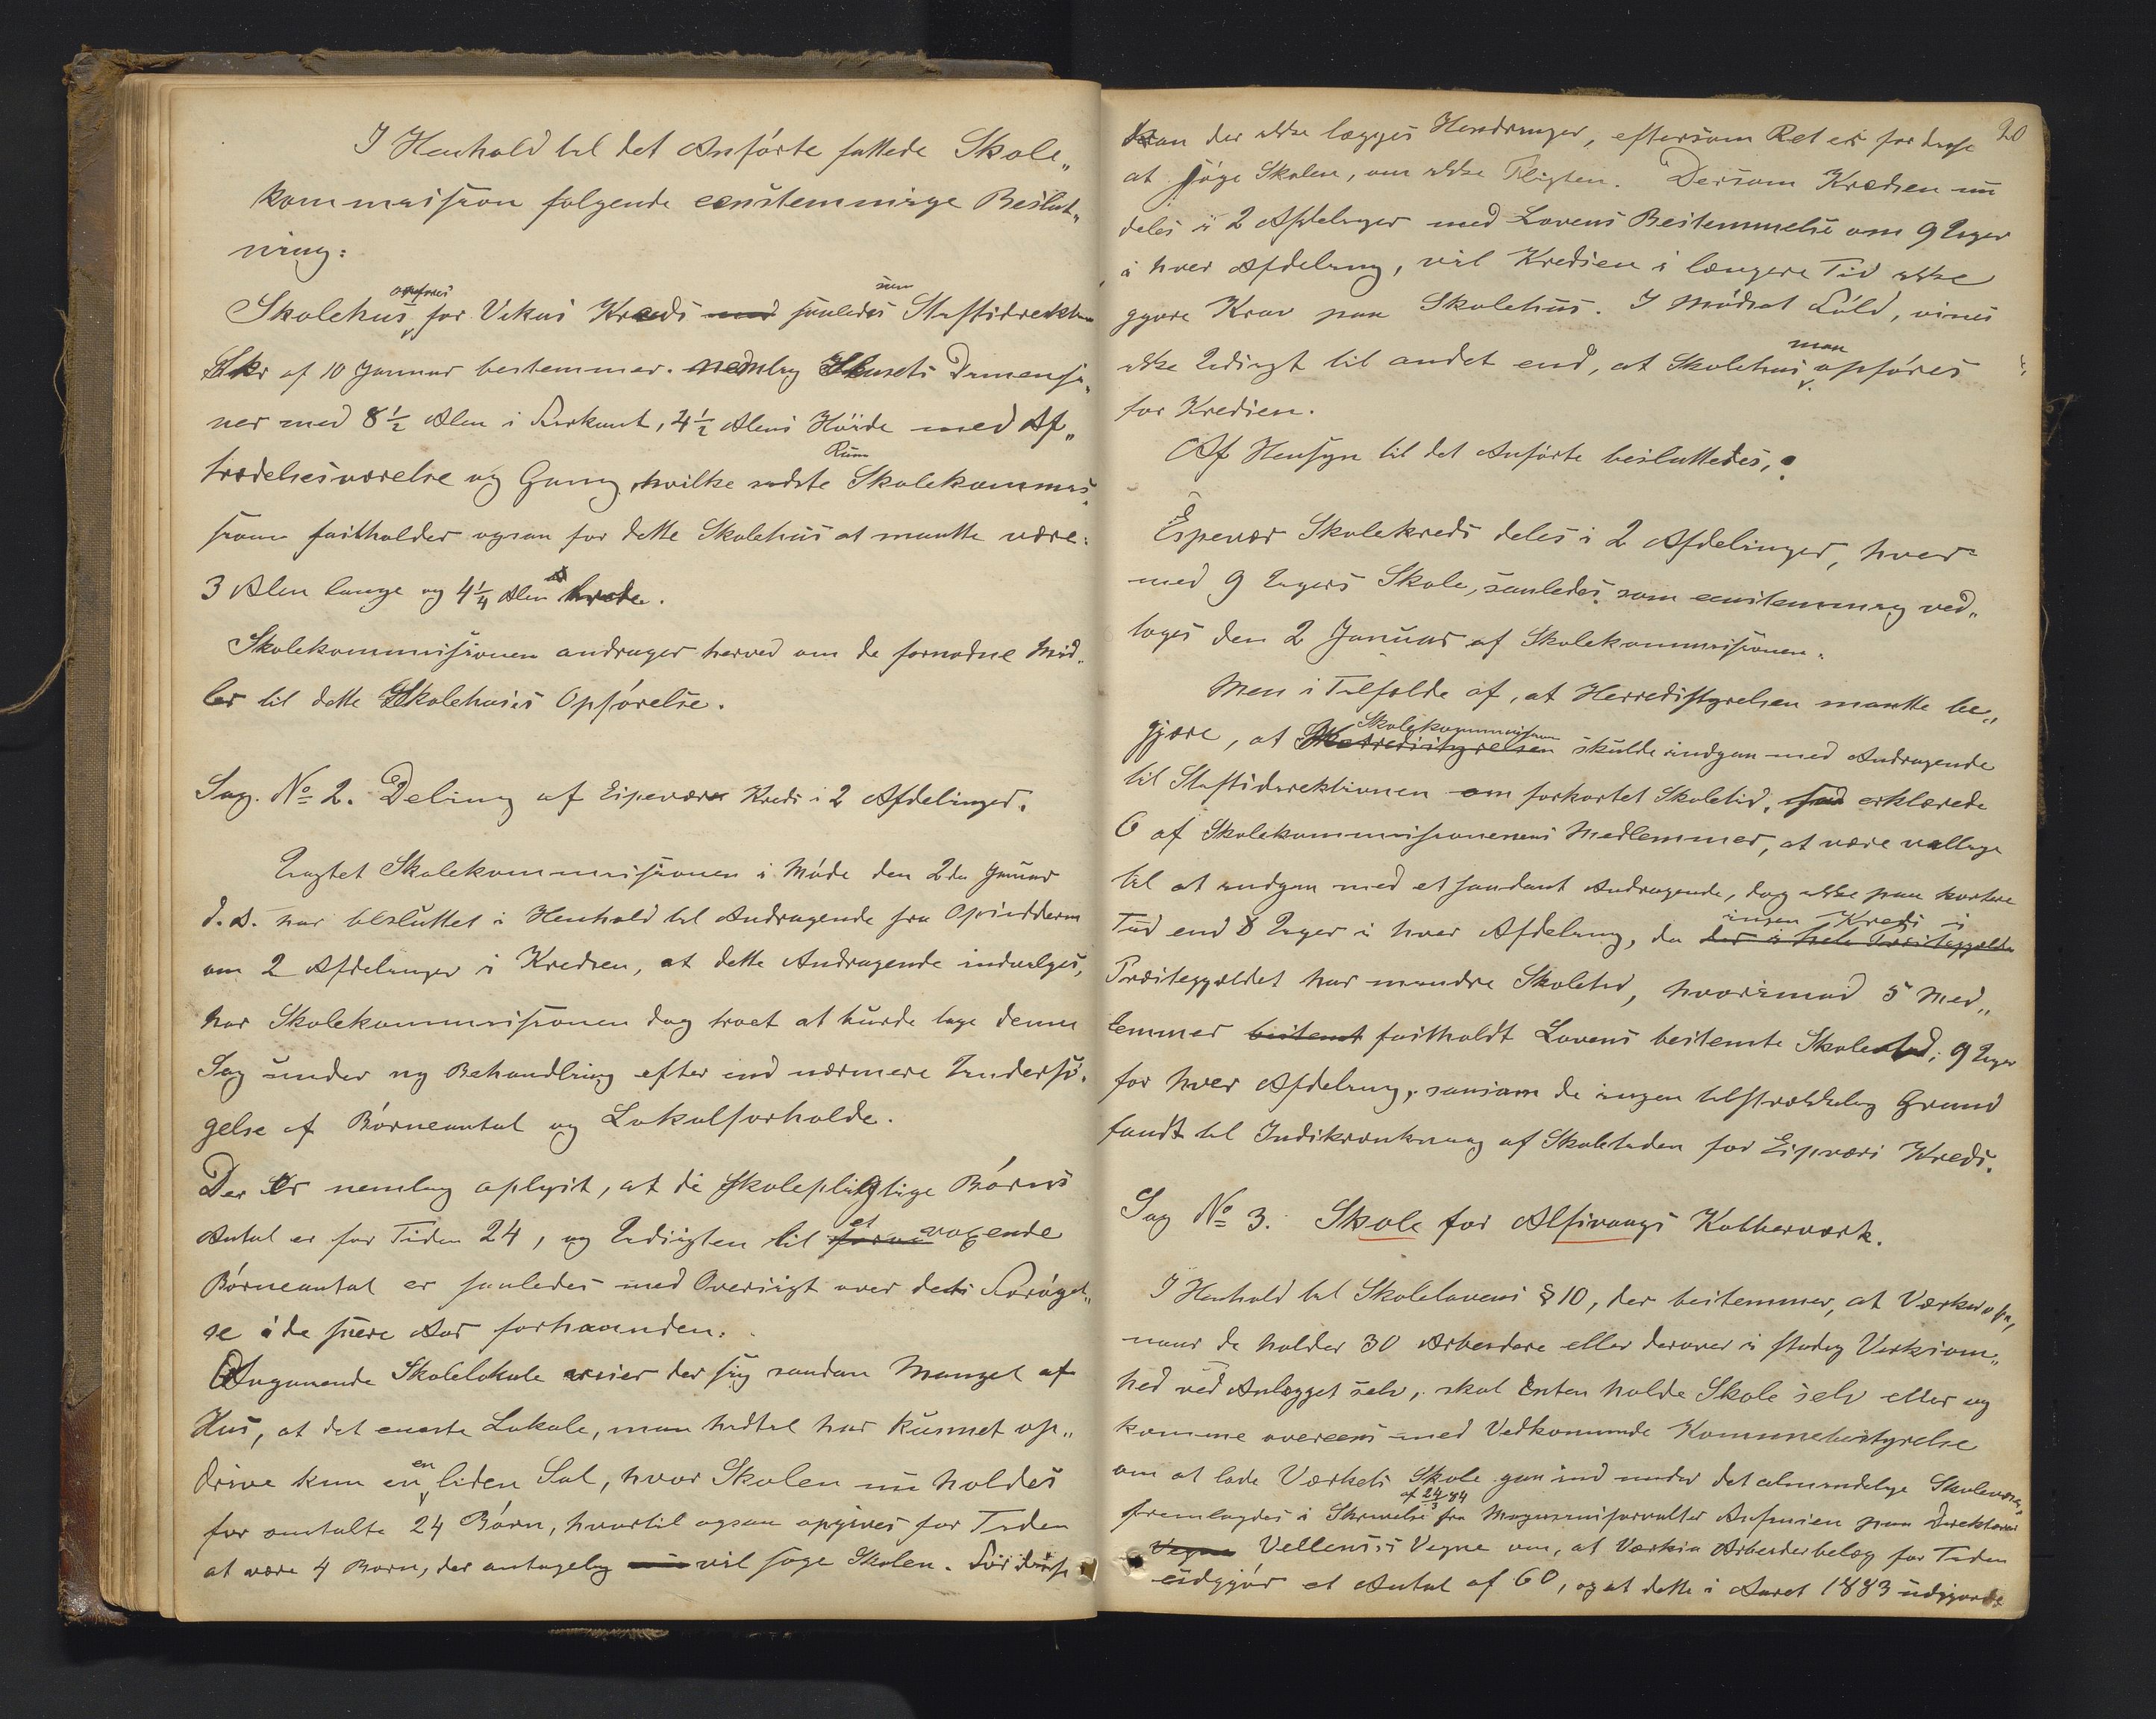 I Henhold til det Anførte fattede Skole„
kommission følgende eenstemmige Beslut„
ning:
Skolehus opføres for Vikas Kreds saaledes som Stiftsdirektionens
Skr af 10 Januar bestemmer. nemlig Husets Dimensjo„
ner med 8½ Alen i Firkant, 4½ Alens Høide med Af„
trædelsesværelse og Gang, hvilke sidste Rum Skolekommis„
sionen fastholder ogsaa for dette Skolehus at maatte være:
3 Alen lange og 4¼ Alen brede.
Skolekommissionen andrager herved om de fornødne Mid„
ler til dette Skolehuses Opførelse.
Sag. No 2. Deling af Espevær Kreds i 2 Afdelinger.
Uagtet Skolekommissionen i Møde den 2den Januar
d.A. har besluttet i Henhold til Andragende fra Opsidderne
om 2 Afdelinger i Kredsen, at dette Andragende indvilges,
har Skolekommissionen dog troet at burde tage denne
Sag under ny Behandling efter end nærmere Undersø„
gelse af Børneantal og Lokalforholde.
Der er nemlig oplyst, at de skolepligtige Børns
Antal er for Tiden 24, og Udsigten til et voxende
Børneantal er saaledes med Oversigt over dets Forøgel„
se i de fleere Aar forhaanden.
Angaaende Skolelokale viser der sig saadan Mangel af
Hus, at det eneste Lokale, man hidtil har kunnet op„
drive kun en liden Sal, hvor Skolen nu holdes
for omtalte 24 Børn, hvortil ogsaa opgives for Tiden
at være 4 Børn, der antagelig vil søge Skolen. For disse
20
kan der ikke lægges Hindringer, eftersom Ret er for disse
at søge Skolen, om ikke Pligten. Dersom Kredsen nu
deles i 2 Afdelinger med Lovens Bestemmelse om 9 Uger
i hver Afdeling, vil Kredsen i længere Tid ikke
gjøre Krav paa Skolehus. I modsat Fald, vines
ikke Udsigt til andet end, at Skolehus maa opføres
for Kredsen.
Af Hensyn til det Anførte besluttedes:
Espevær Skolekreds deles i 2 Afdelinger, hver
med 9 Ugers Skole, saaledes som eenstemmig ved„
toges den 2 Januar af Skolekommissionen.
Men i Tilfælde af, at Herredsstyrelsen maatte be„
gjære, at Skolekommissionen skulde indgaa med Andragende
til Stiftsdirektionen om forkortet Skoletid, erklærede
6 af Skolekommissionens Medlemmer, at være villige
til at indgaa med et saadant Andragende, dog ikke paa kortere
Tid end 8 Uger i hver Afdeling, da ingen Kreds i
Præstegjældet har mindre Skoletid, hvorimod 5 Med„
lemmer fastholdt Lovens bestemte Skoletid; 9 Uger
for hver Afdeling, saasom de ingen tilstrækkelig Grund
fandt til Indskrænkning af Skoletiden for Espværs Kreds.
Sag No 3. Skole for Alsvaags Kobberværk.
I Henhold til Skolelovens § 10, der bestemmer, at Værker o.s.v,
naar de holder 30 Arbeidere eller derover i stadig Virksom„
hed ved Anlægget selv, skal enten holde Skole selv eller og
komme overeens med Vedkommende Kommunebestyrelse
om at lade Værkets Skole gaa ind under det almindelige Skolevæsen,
fremlagdes i Skrivelse af 24/3 84 fra Magasinsforvalter Direktører
Vellensis Vegne om, at Værkets Arbeiderbelæg for Tiden
udgjør et Antal af 60, og at dette i Aaret 1883 udgjorde